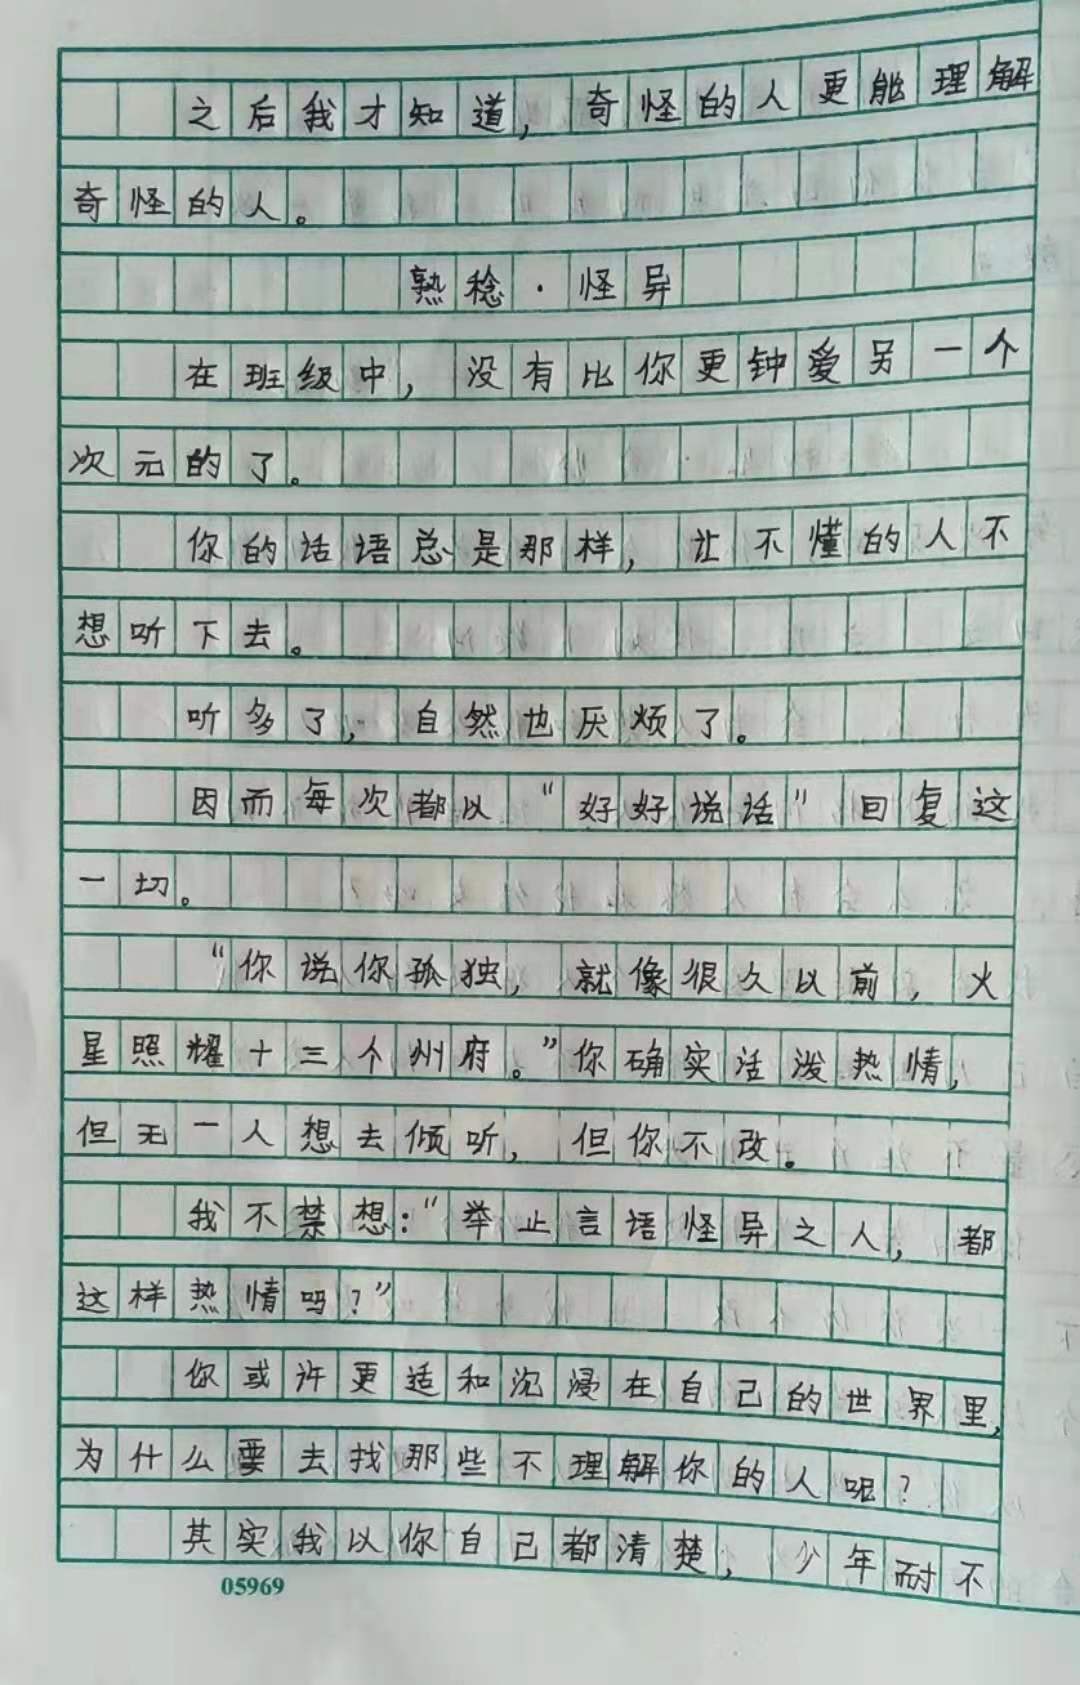 之后我才知道，奇怪的人更能理解
奇怪的人。
熟稔·怪异
在班级中，没有比你更钟爱另一个
次元的了。
你的话语总是那样，让不懂的人不
想听下去。
听多了，自然也厌烦了。
因而每次都以“好好说话”回复这
一切。
“你说你孤独，就像很久以前，火
星照耀十三个州府。”你确实活泼热情，
但无一人想去倾听，但你不改。
我不禁想：“举止言语怪异之人，都
这样热情吗？”
你或许更适和沉浸在自己的世界里，
为什么要去找那些不理解你的人呢？
其实我以你自己都清楚，少年耐不
05969